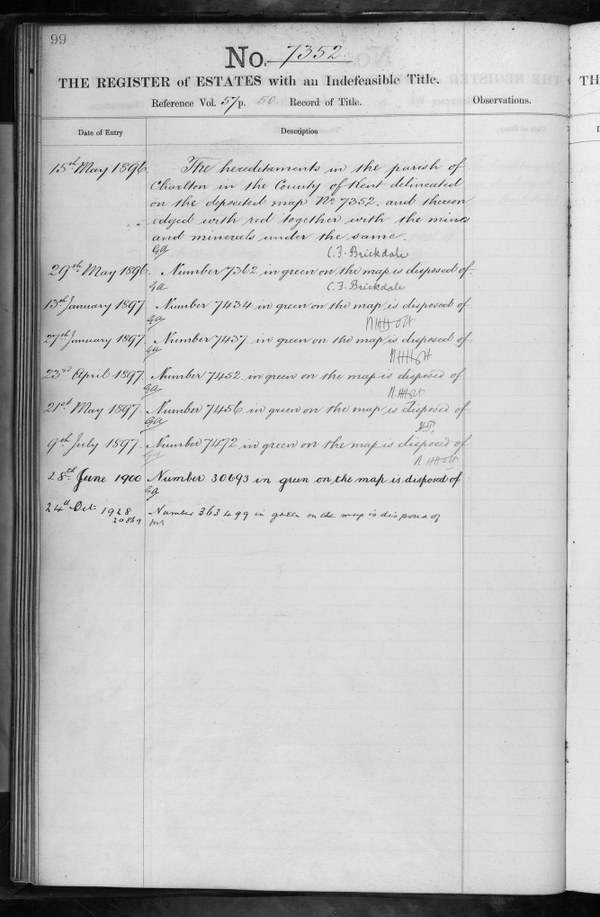 99
No. 7352
THE REGISTER of ESTATES with an Indefeasible Title.
Reference Vol. 57 p. 50. Record of Title.
Observations.
Date of Entry
Description
15th May 1896. The hereditaments in the parish of
Charlton in the County of Kent delineated
on the deposited map No 7352. and thereon
edged with red together with the mines
and minerals under the same.
GA
C.F. Brickdale
29th May 1896. Number 7362 in green on the map is disposed of
GA
C.F. Brickdale
13th January 1897. Number 7434 in green on the map is disposed of
GA
27th January 1897. Number 7437 in green on the map is disposed of
GA
23rd April 1897. Number 7452 in green on the map is disposed of
GA
21st May 1897. Number 7456 in green on the map is disposed of
GA
9th July 1897. Number 7472 in green on the map is disposed of
28th June 1900 Number 30693 in green on the map is disposed of
GA
24th Oct. 1928 Number 363499 in green on the map is disposed of
TH